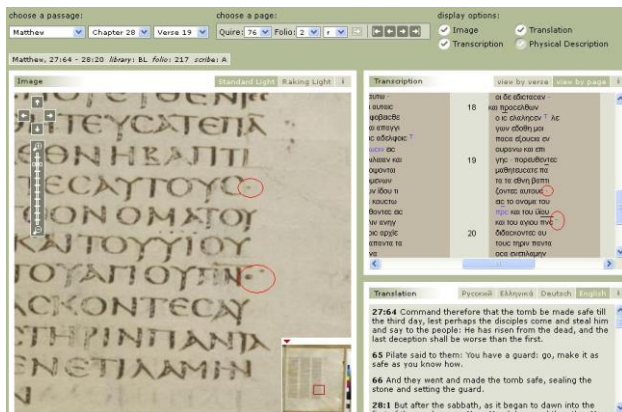 choose a passage:
choose a page:
display options:
Matthew
Chapter 28
Verse 19
Quire: 76
Folio: 2
r
Image
Translation
Transcription
Physical Description
Matthew, 27:64 - 28:20 library: BL folio: 217 scribe: A
Image
Standard Light
Raking Light
i
ΤΕΥϹΑΤΕΠΑ
ΕΘΝΗΒΑΠΤΙ
ΤΕϹΑΥΤΟΥϹ
ΤΟΟΝΟΜΑΤΟΥ
ΚΑΙΤΟΥΥΙΟΥ
ΤΟΥΑΓΙΟΥΠΝϹ
ΑϹΚΟΝΤΕϹΑΥ
ΤΗΡΙΝΠΑΝΤΑ
ΕΝΕΤΙΛΑΜΗΝ
Transcription
view by verse
view by page
i
οι δε εδιστασαν
18 και προσελθων
ο ις ελαλησεν τ λε
γων εδοθη μοι
πασα εξουσια εν
ουρανω και επι
19 γης · πορευθεντες
μαθητευσατε πα
τα τα εθνη βαπτι
ζοντες αυτους
εις το ονομα του
πρς και του υιου
και του αγιου πνς
20 διδασκοντες αυ
τους τηριν παντα
οσα ενετιλαμην
Translation
Русский
Ελληνικά
Deutsch
English
i
27:64 Command therefore that the tomb be made safe till
the third day, lest perhaps the disciples come and steal him
and say to the people: He has risen from the dead, and the
last deception shall be worse than the first.
65 Pilate said to them: You have a guard: go, make it as
safe as you know how.
66 And they went and made the tomb safe, sealing the
stone and setting the guard.
28:1 But after the sabbath, as it began to dawn into the